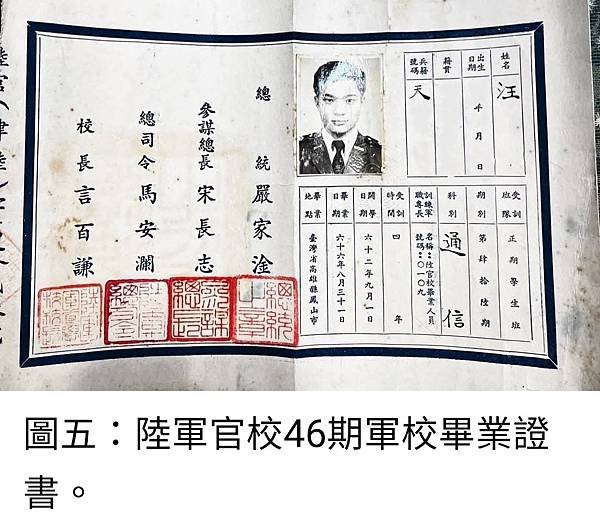 姓名 汪
出生日期 年 月 日
籍貫
兵籍號碼 天
受訓班隊 正期學生班
期別 第肆拾陸期
科別 通信
訓練軍職專長 名稱：陸官校畢業人員
號碼：○一○九
受訓時間 四年
開學日期 六十二年九月一日
畢業日期 六十六年八月三十一日
畢業地點 臺灣省高雄縣鳳山市
總統 嚴家淦
參謀總長 宋長志
總司令 馬安瀾
校長 言百謙
總統之章
參謀總長
圖五：陸軍官校46期軍校畢業證
書。